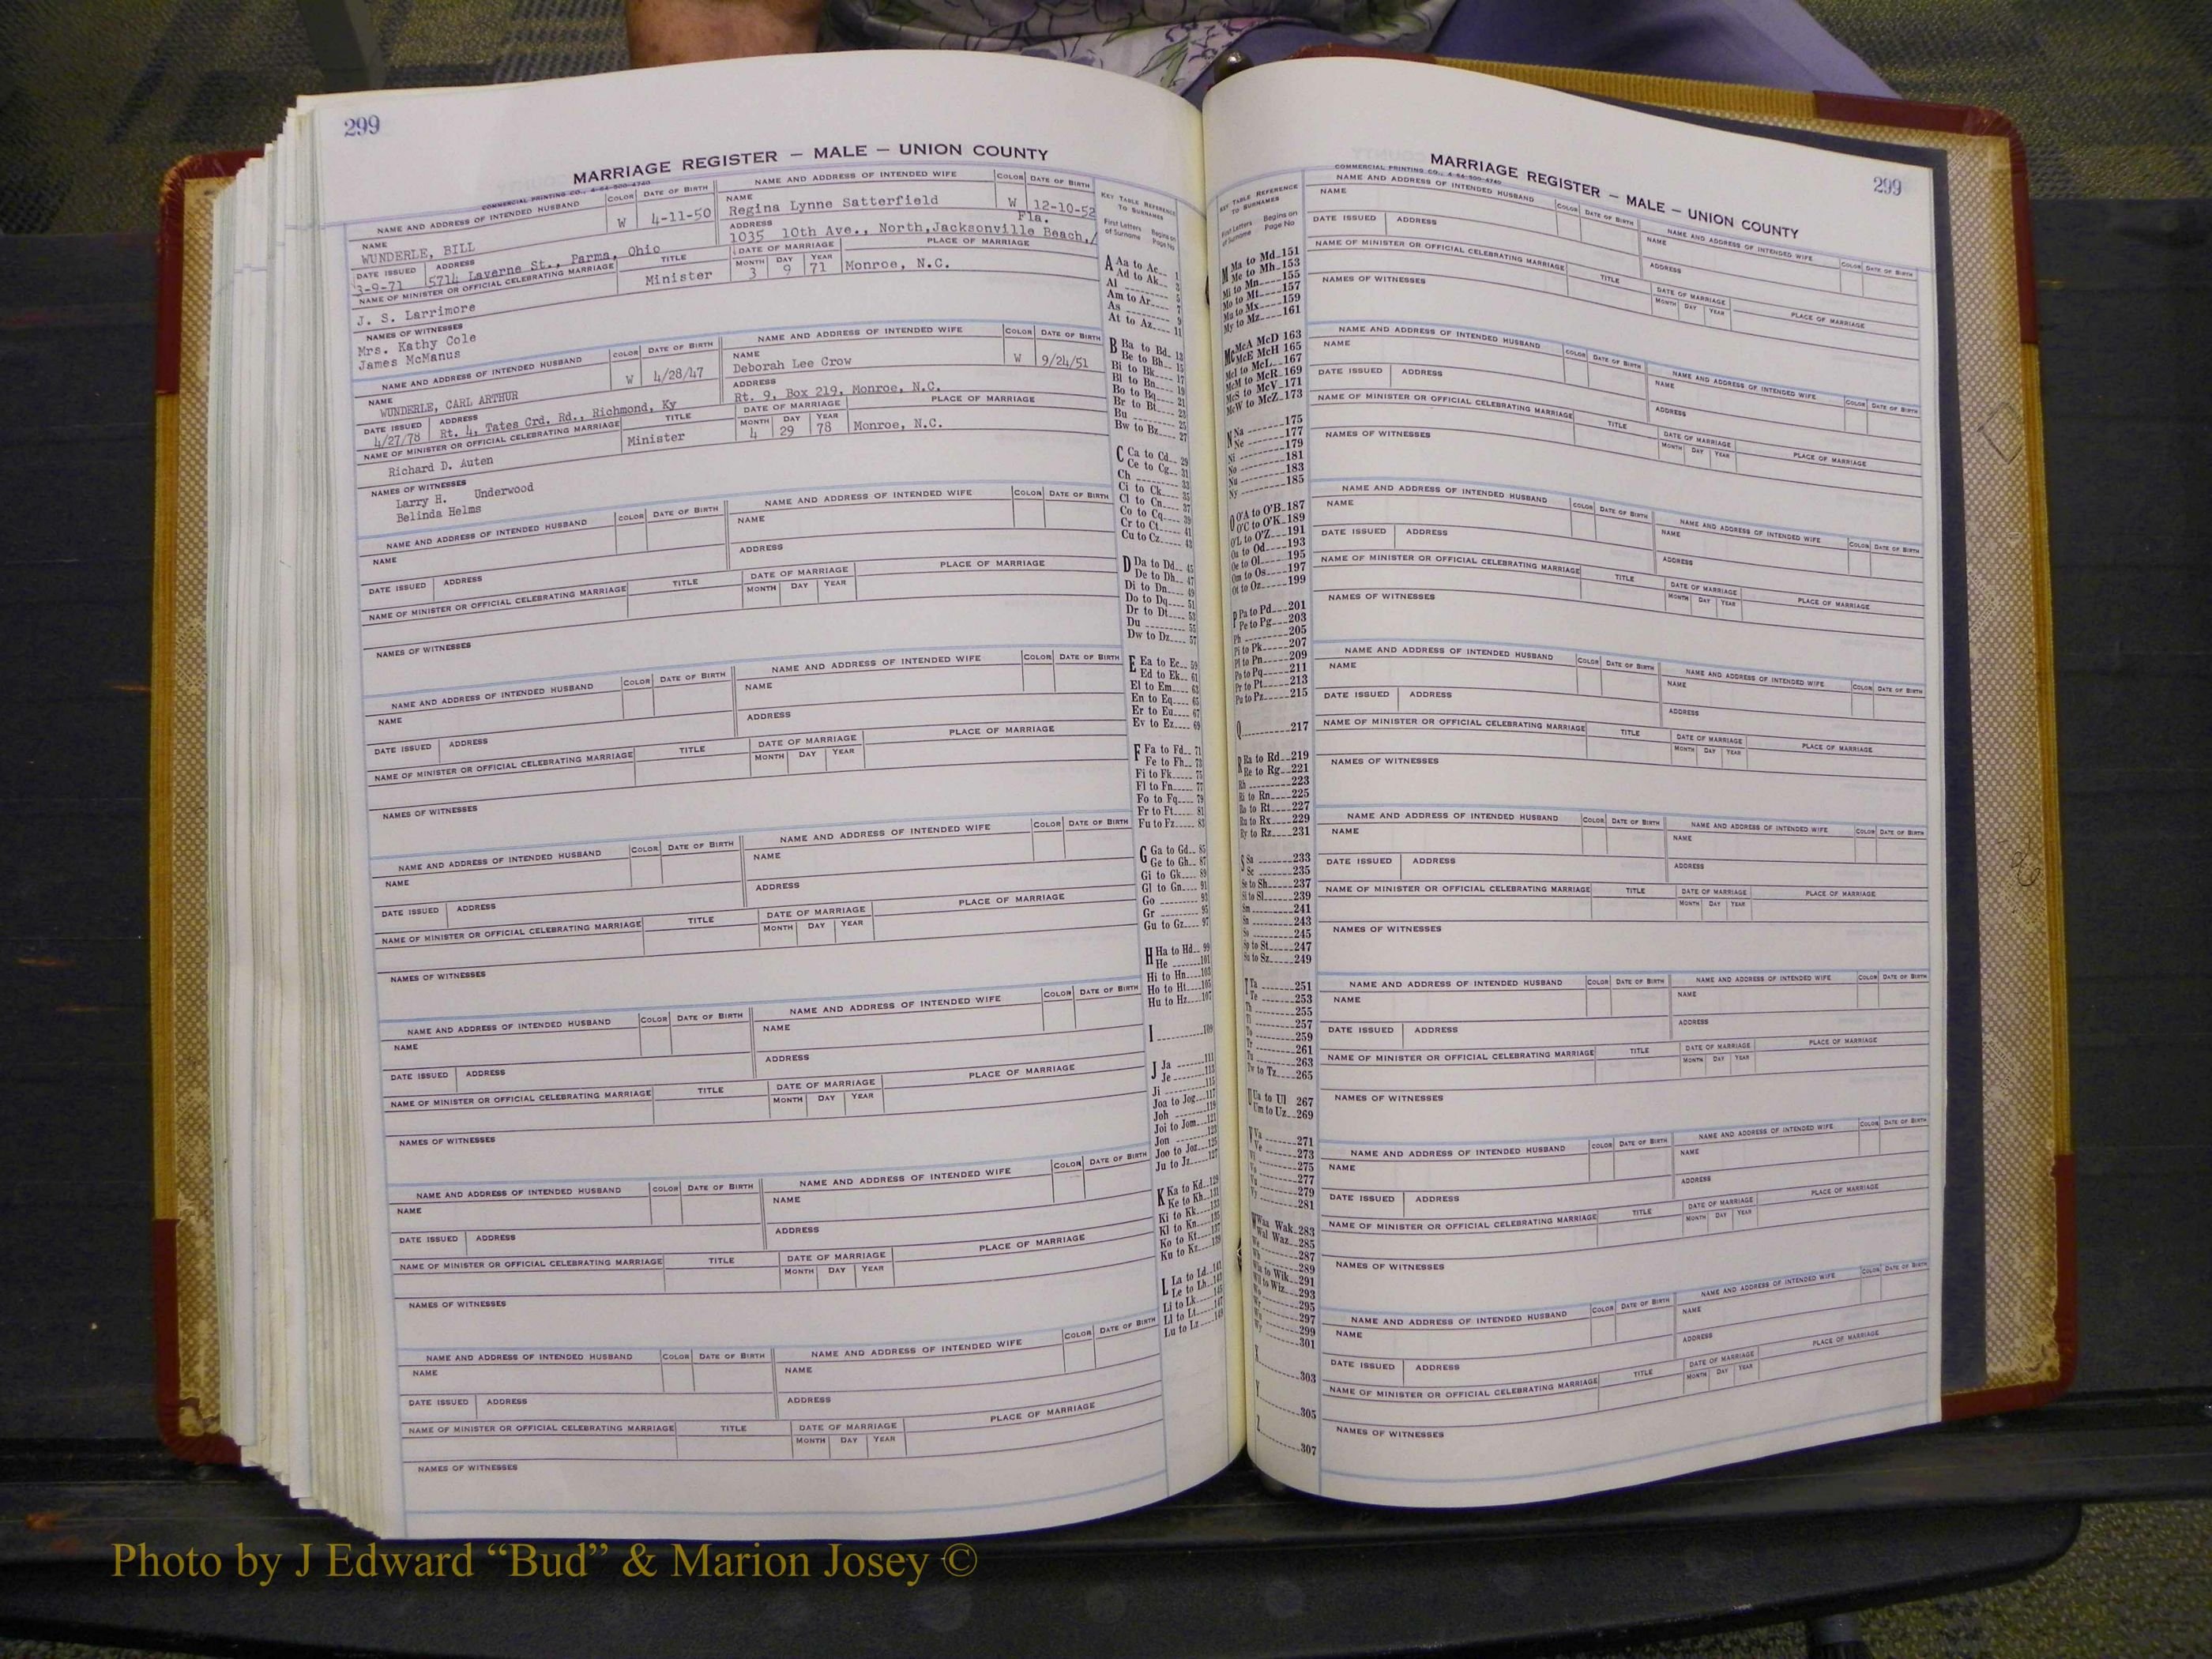 299
MARRIAGE REGISTER — MALE — UNION COUNTY
COMMERCIAL PRINTING CO., 4-64-500-4740
NAME AND ADDRESS OF INTENDED HUSBAND COLOR DATE OF BIRTH NAME AND ADDRESS OF INTENDED WIFE COLOR DATE OF BIRTH
NAME WUNDERLE, BILL W 4-11-50 NAME Regina Lynne Satterfield W 12-10-52
DATE ISSUED 3-9-71 ADDRESS 5714 Laverne St., Parma, Ohio ADDRESS 1035 10th Ave., North, Jacksonville Beach,/ Fla.
NAME OF MINISTER OR OFFICIAL CELEBRATING MARRIAGE TITLE DATE OF MARRIAGE PLACE OF MARRIAGE
J. S. Larrimore Minister MONTH 3 DAY 9 YEAR 71 Monroe, N.C.
NAMES OF WITNESSES
Mrs. Kathy Cole
James McManus
NAME AND ADDRESS OF INTENDED HUSBAND COLOR DATE OF BIRTH NAME AND ADDRESS OF INTENDED WIFE COLOR DATE OF BIRTH
NAME WUNDERLE, CARL ARTHUR W 4/28/47 NAME Deborah Lee Crow W 9/24/51
DATE ISSUED 4/27/78 ADDRESS Rt. 4, Tates Crd. Rd., Richmond, Ky ADDRESS Rt. 9, Box 219, Monroe, N.C.
NAME OF MINISTER OR OFFICIAL CELEBRATING MARRIAGE TITLE DATE OF MARRIAGE PLACE OF MARRIAGE
Richard D. Auten Minister MONTH 4 DAY 29 YEAR 78 Monroe, N.C.
NAMES OF WITNESSES
Larry H. Underwood
Belinda Helms
NAME AND ADDRESS OF INTENDED HUSBAND COLOR DATE OF BIRTH NAME AND ADDRESS OF INTENDED WIFE COLOR DATE OF BIRTH
NAME NAME
DATE ISSUED ADDRESS ADDRESS
NAME OF MINISTER OR OFFICIAL CELEBRATING MARRIAGE TITLE DATE OF MARRIAGE PLACE OF MARRIAGE
MONTH DAY YEAR
NAMES OF WITNESSES
KEY TABLE REFERENCE TO SURNAMES
First Letters of Surname Begins on Page No
A Aa to Ac 1
Ad to Ak 3
Al 5
Am to Ar 7
As 9
At to Az 11
B Ba to Bd 13
Be to Bh 15
Bi to Bk 17
Bl to Bn 19
Bo to Bq 21
Br to Bt 23
Bu 25
Bw to Bz 27
C Ca to Cd 29
Ce to Cg 31
Ch 33
Ci to Ck 35
Cl to Cn 37
Co to Cq 39
Cr to Ct 41
Cu to Cz 43
D Da to Dd 45
De to Dh 47
Di to Dn 49
Do to Dq 51
Dr to Dt 53
Du 55
Dw to Dz 57
E Ea to Ec 59
Ed to Ek 61
El to Em 63
En to Eq 65
Er to Eu 67
Ev to Ez 69
F Fa to Fd 71
Fe to Fh 73
Fi to Fk 75
Fl to Fn 77
Fo to Fq 79
Fr to Ft 81
Fu to Fz 83
G Ga to Gd 85
Ge to Gh 87
Gi to Gk 89
Gl to Gn 91
Go 93
Gr 95
Gu to Gz 97
H Ha to Hd 99
He 101
Hi to Hn 103
Ho to Ht 105
Hu to Hz 107
I 109
J Ja 111
Je 113
Ji 115
Joa to Jog 117
Joh 119
Joi to Jom 121
Jon 123
Joo to Joz 125
Ju to Jz 127
K Ka to Kd 129
Ke to Kh 131
Ki to Kk 133
Kl to Kn 135
Ko to Kt 137
Ku to Kz 139
L La to Ld 141
Le to Lh 143
Li to Lk 145
Ll to Lt 147
Lu to Lz 149
299
MARRIAGE REGISTER — MALE — UNION COUNTY
COMMERCIAL PRINTING CO., 4-64-500-4740
KEY TABLE REFERENCE TO SURNAMES
First Letters of Surname Begins on Page No
M Ma to Md 151
Me to Mh 153
Mi to Mn 155
Mo to Mt 157
Mu to Mx 159
My to Mz 161
Mc McA McD 163
McE McH 165
McI to McL 167
McM to McR 169
McS to McV 171
McW to McZ 173
N Na 175
Ne 177
Ni 179
No 181
Nu 183
Ny 185
O O'A to O'B 187
O'C to O'K 189
O'L to O'Z 191
Oa to Od 193
Oe to Ol 195
Om to Os 197
Ot to Oz 199
P Pa to Pd 201
Pe to Pg 203
Ph 205
Pi to Pk 207
Pl to Pn 209
Po to Pq 211
Pr to Pt 213
Pu to Pz 215
Q 217
R Ra to Rd 219
Re to Rg 221
Rh 223
Ri to Rn 225
Ro to Rt 227
Ru to Rx 229
Ry to Rz 231
S Sa 233
Sc 235
Se to Sh 237
Si to Sl 239
Sm 241
Sn 243
So 245
Sp to St 247
Su to Sz 249
T Ta 251
Te 253
Th 255
Ti 257
To 259
Tr 261
Tu 263
Tw to Tz 265
U Ua to Ul 267
Um to Uz 269
V Va 271
Ve 273
Vi 275
Vo 277
Vu 279
Vy 281
W Waa Wak 283
Wal Waz 285
We 287
Wh 289
Wia to Wik 291
Wil to Wiz 293
Wo 295
Wr 297
299
Wy 301
X 303
Y 305
Z 307
NAME AND ADDRESS OF INTENDED HUSBAND COLOR DATE OF BIRTH NAME AND ADDRESS OF INTENDED WIFE COLOR DATE OF BIRTH
NAME NAME
DATE ISSUED ADDRESS ADDRESS
NAME OF MINISTER OR OFFICIAL CELEBRATING MARRIAGE TITLE DATE OF MARRIAGE PLACE OF MARRIAGE
MONTH DAY YEAR
NAMES OF WITNESSES
Photo by J Edward “Bud” & Marion Josey ©